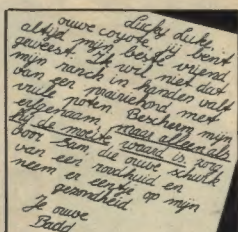 Lucky Luke,
ouwe coyote, jij bent
altijd mijn beste vriend
geweest. Ik wil niet dat
mijn ranch in handen valt
van een prairiehond met
vuile poten. Bescherm mijn
erfgenaam, maar alleen als
hij de moeite waard is. Zorg
voor Sam, die ouwe schurk
van een roodhuid en
neem er eentje op mijn
gezondheid.
Je ouwe
Badd